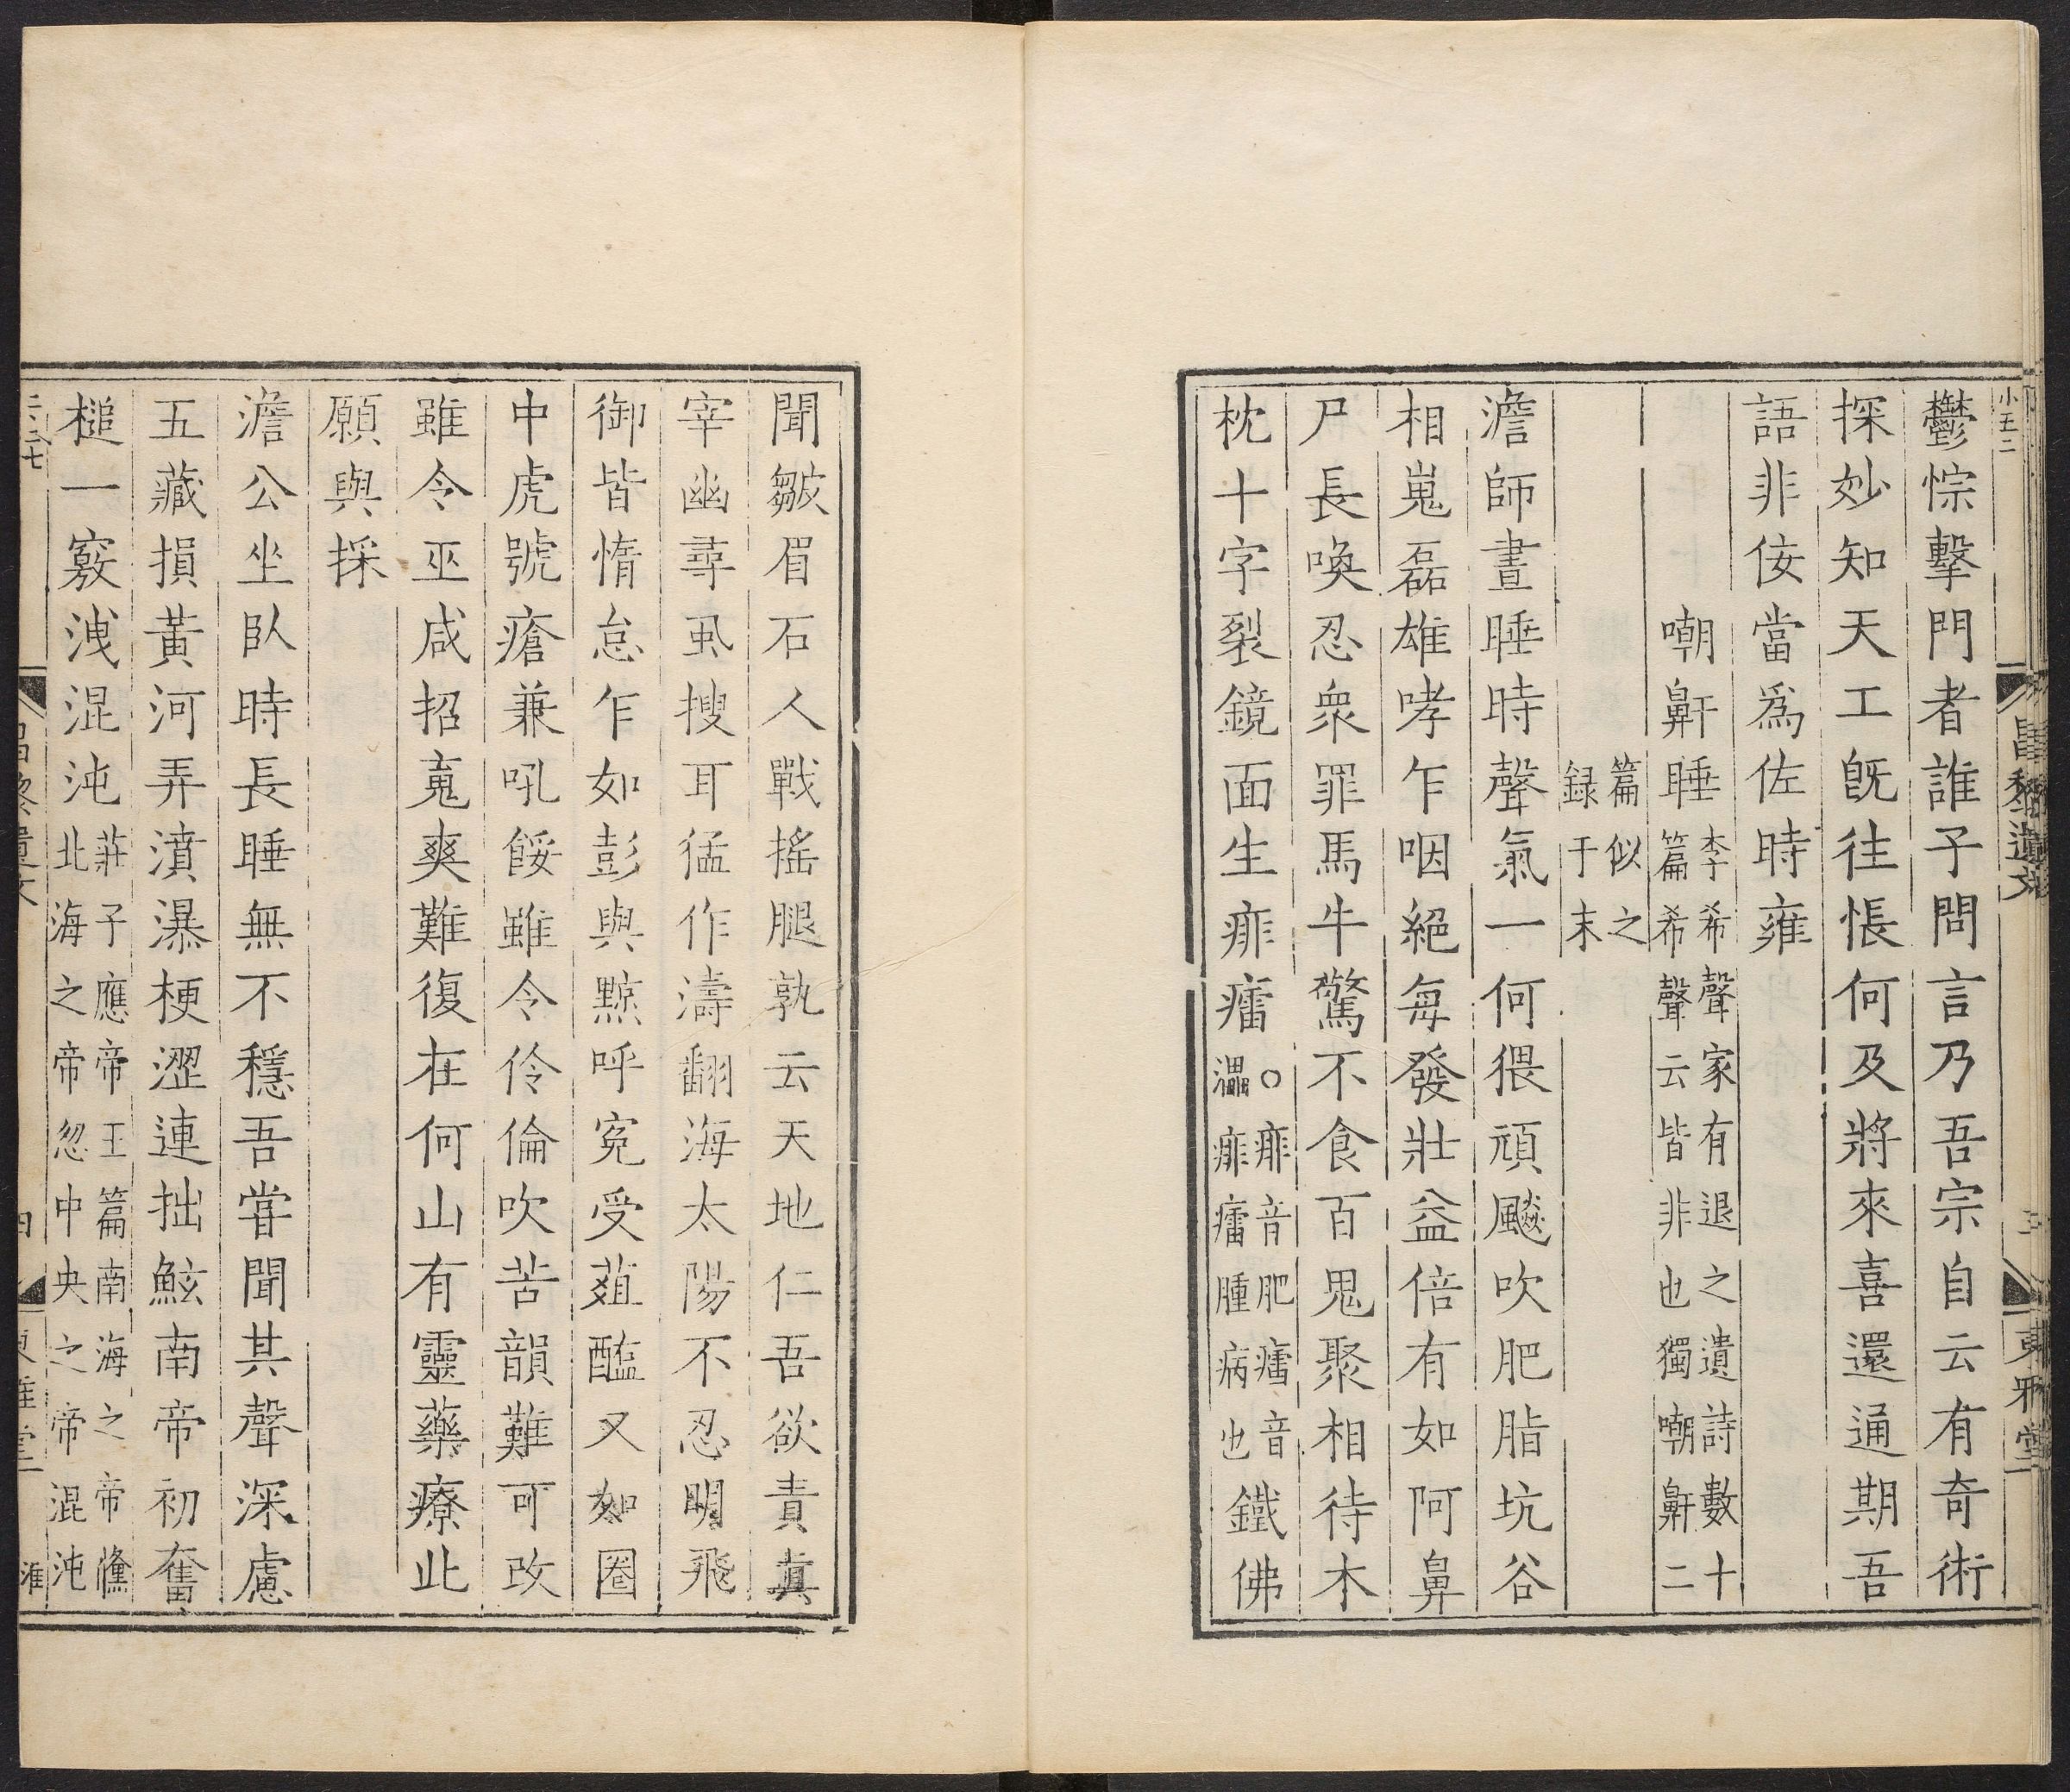 鬱悰擊門者誰子問言乃吾宗自云有奇術
探妙知天工旣往悵何及將來喜還通期吾
語非佞當爲佐時雍
嘲鼾睡
李希聲家有退之遺詩數十
篇希聲云皆非也獨嘲鼾二
篇似之
録于末
澹師晝睡時聲氣一何猥頑飈吹肥脂坑谷
相嵬磊雄哮乍咽絕每發壯益倍有如阿鼻
尸長喚忍衆罪馬牛驚不食百鬼聚相待木
枕十字裂鏡面生痱癗
○痱音肥癗音
㵢痱癗腫病也
鐵佛
聞皺眉石人戰搖腿孰云天地仁吾欲責眞
宰幽尋虱搜耳猛作濤翻海太陽不忍明飛
御皆惰怠乍如彭與黥呼寃受葅醢又如圈
中虎號瘡兼吼餒雖令伶倫吹苦韻難可改
雖令巫咸招䰟爽難復在何山有靈藥療此
願與採
澹公坐臥時長睡無不穩吾嘗聞其聲深慮
五藏損黃河弄濆瀑梗澀連拙鮌南帝初奮
槌一竅洩混沌
莊子應帝王篇南海之帝儵
北海之帝忽中央之帝混沌